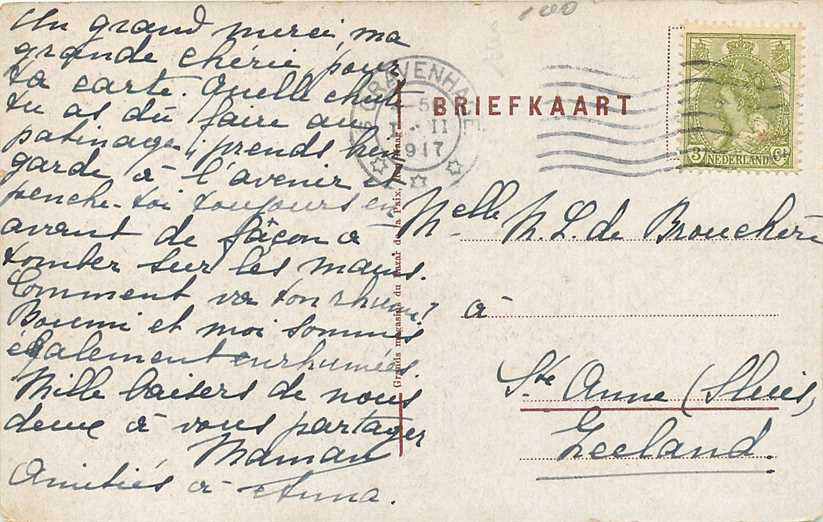 Un grand merci, ma
grande chérie, pour
ta carte. Quelle chute
tu as du faire au
patinage; prends bien
garde à l'avenir et
penche-toi toujours en
avant de façon à
tomber sur les mains.
Comment va ton rhume?
Boumi et moi sommes
également enrhumées.
Mille baisers de nous
deux à vous partager
Maman
Amitiés à Anna.
100
'S GRAVENHAGE
5
II
1917
BRIEFKAART
3 NEDERLAND Ct
Grands magasins du Bazar de la Paix, La Haye
Melle M. L. de Brouchère
à
Ste Anne (Sluis)
Zeeland.